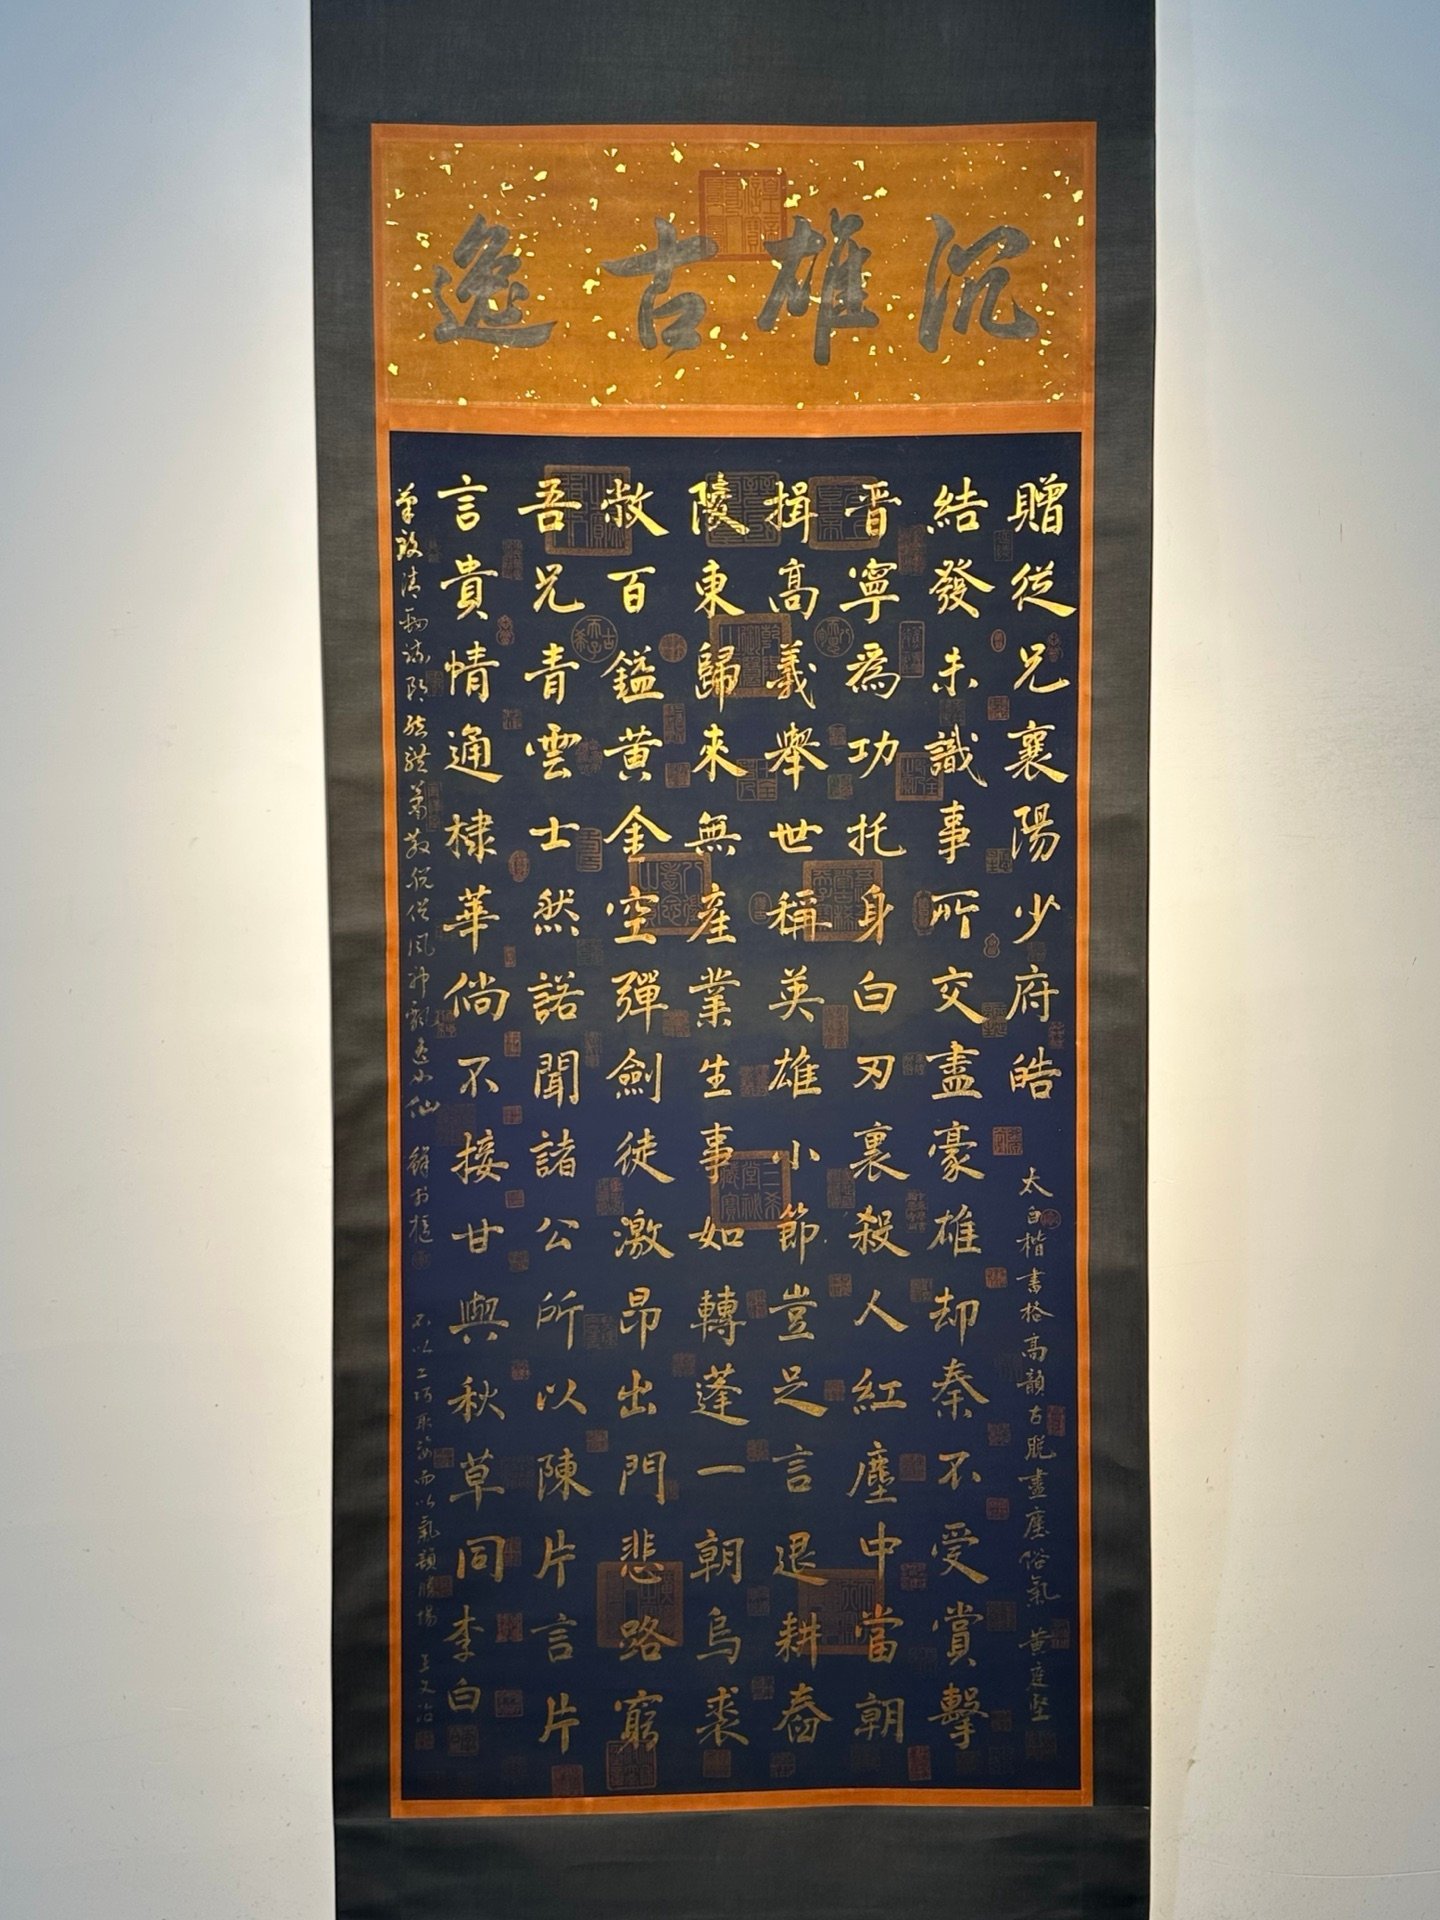 沉雄古逸
贈從兄襄陽少府皓
太白楷書格高韻古脫盡塵俗氣 黄庭堅
結發未識事所交盡豪雄却秦不受賞擊
晋寧為功托身白刃裏殺人紅塵中當朝
揖高義舉世稱英雄小節豈足言退耕舂
陵東歸來無產業生事如轉蓬一朝烏裘
敝百鎰黄金空彈劍徒激昂出門悲路窮
吾兄青雲士然諾聞諸公所以陳片言片
言貴情通棣華倘不接甘與秋草同李白
不以工巧取姿而以氣韻勝場 王文治